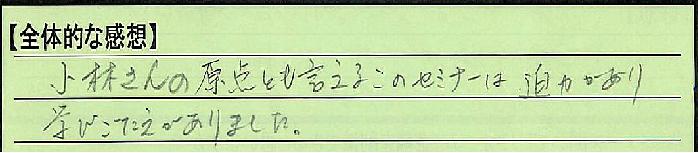 【全体的な感想】
小林さんの原点とも言えるこのセミナーは迫力があり
学びごたえがありました。